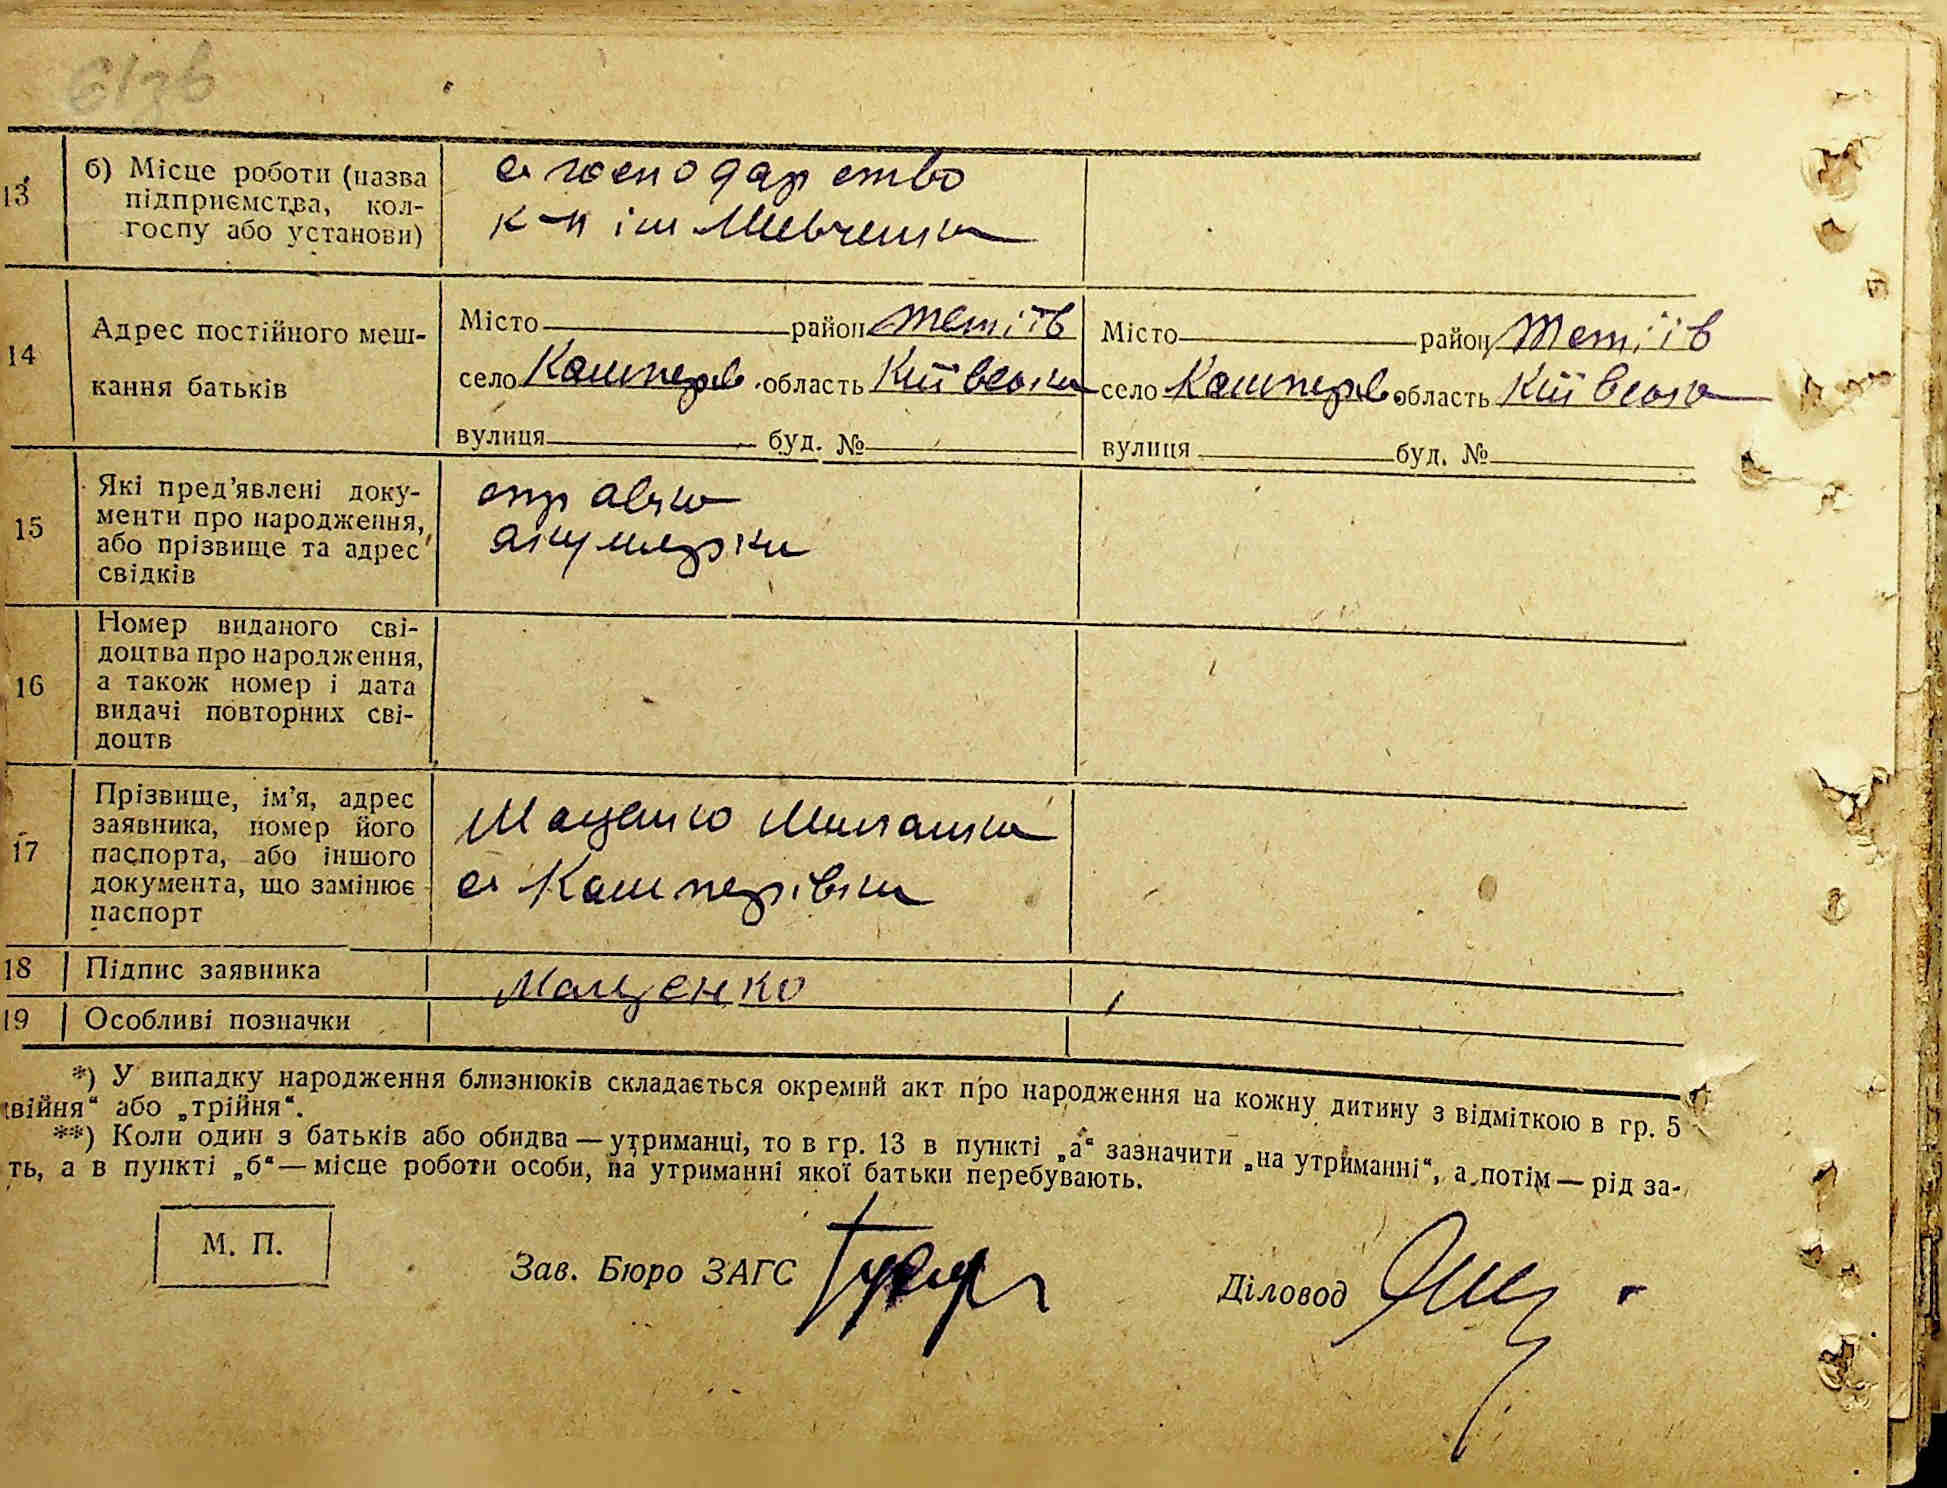 61зв
13 б) Місце роботи (назва підприємства, колгоспу або установи)
с господарство
к-п ім Шевченка
14 Адрес постійного мешкання батьків
Місто район Тетіїв
село Кашперів. область Київська
вулиця буд. №
Місто район Тетіїв
село Кашперів. область Київська
вулиця буд. №
15 Які пред'явлені документи про народження, або прізвище та адрес свідків
справка
акушерки
16 Номер виданого свідоцтва про народження, а також номер і дата видачі повторних свідоцтв
17 Прізвище, ім'я, адрес заявника, номер його паспорта, або іншого документа, що замінює паспорт
Маценко
с Кашперівки
18 Підпис заявника Маценко
19 Особливі позначки
*) У випадку народження близнюків складається окремий акт про народження на кожну дитину з відміткою в гр. 5
двійня“ або „трійня“.
**) Коли один з батьків або обидва—утриманці, то в гр. 13 в пункті „а“ зазначити „на утриманні“, а потім—рід за-
ть, а в пункті „б“—місце роботи особи, на утриманні якої батьки перебувають.
М. П.
Зав. Бюро ЗАГС
Діловод